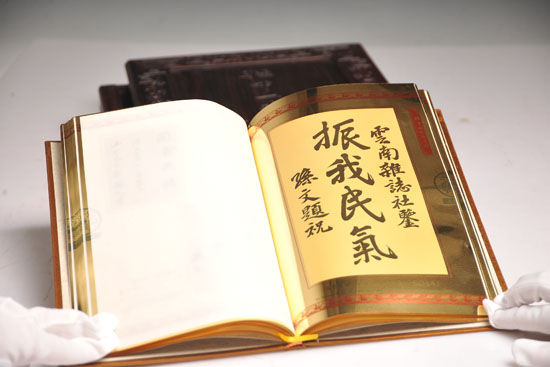 雲南雜誌社鑒
振我民氣
孫文題祝